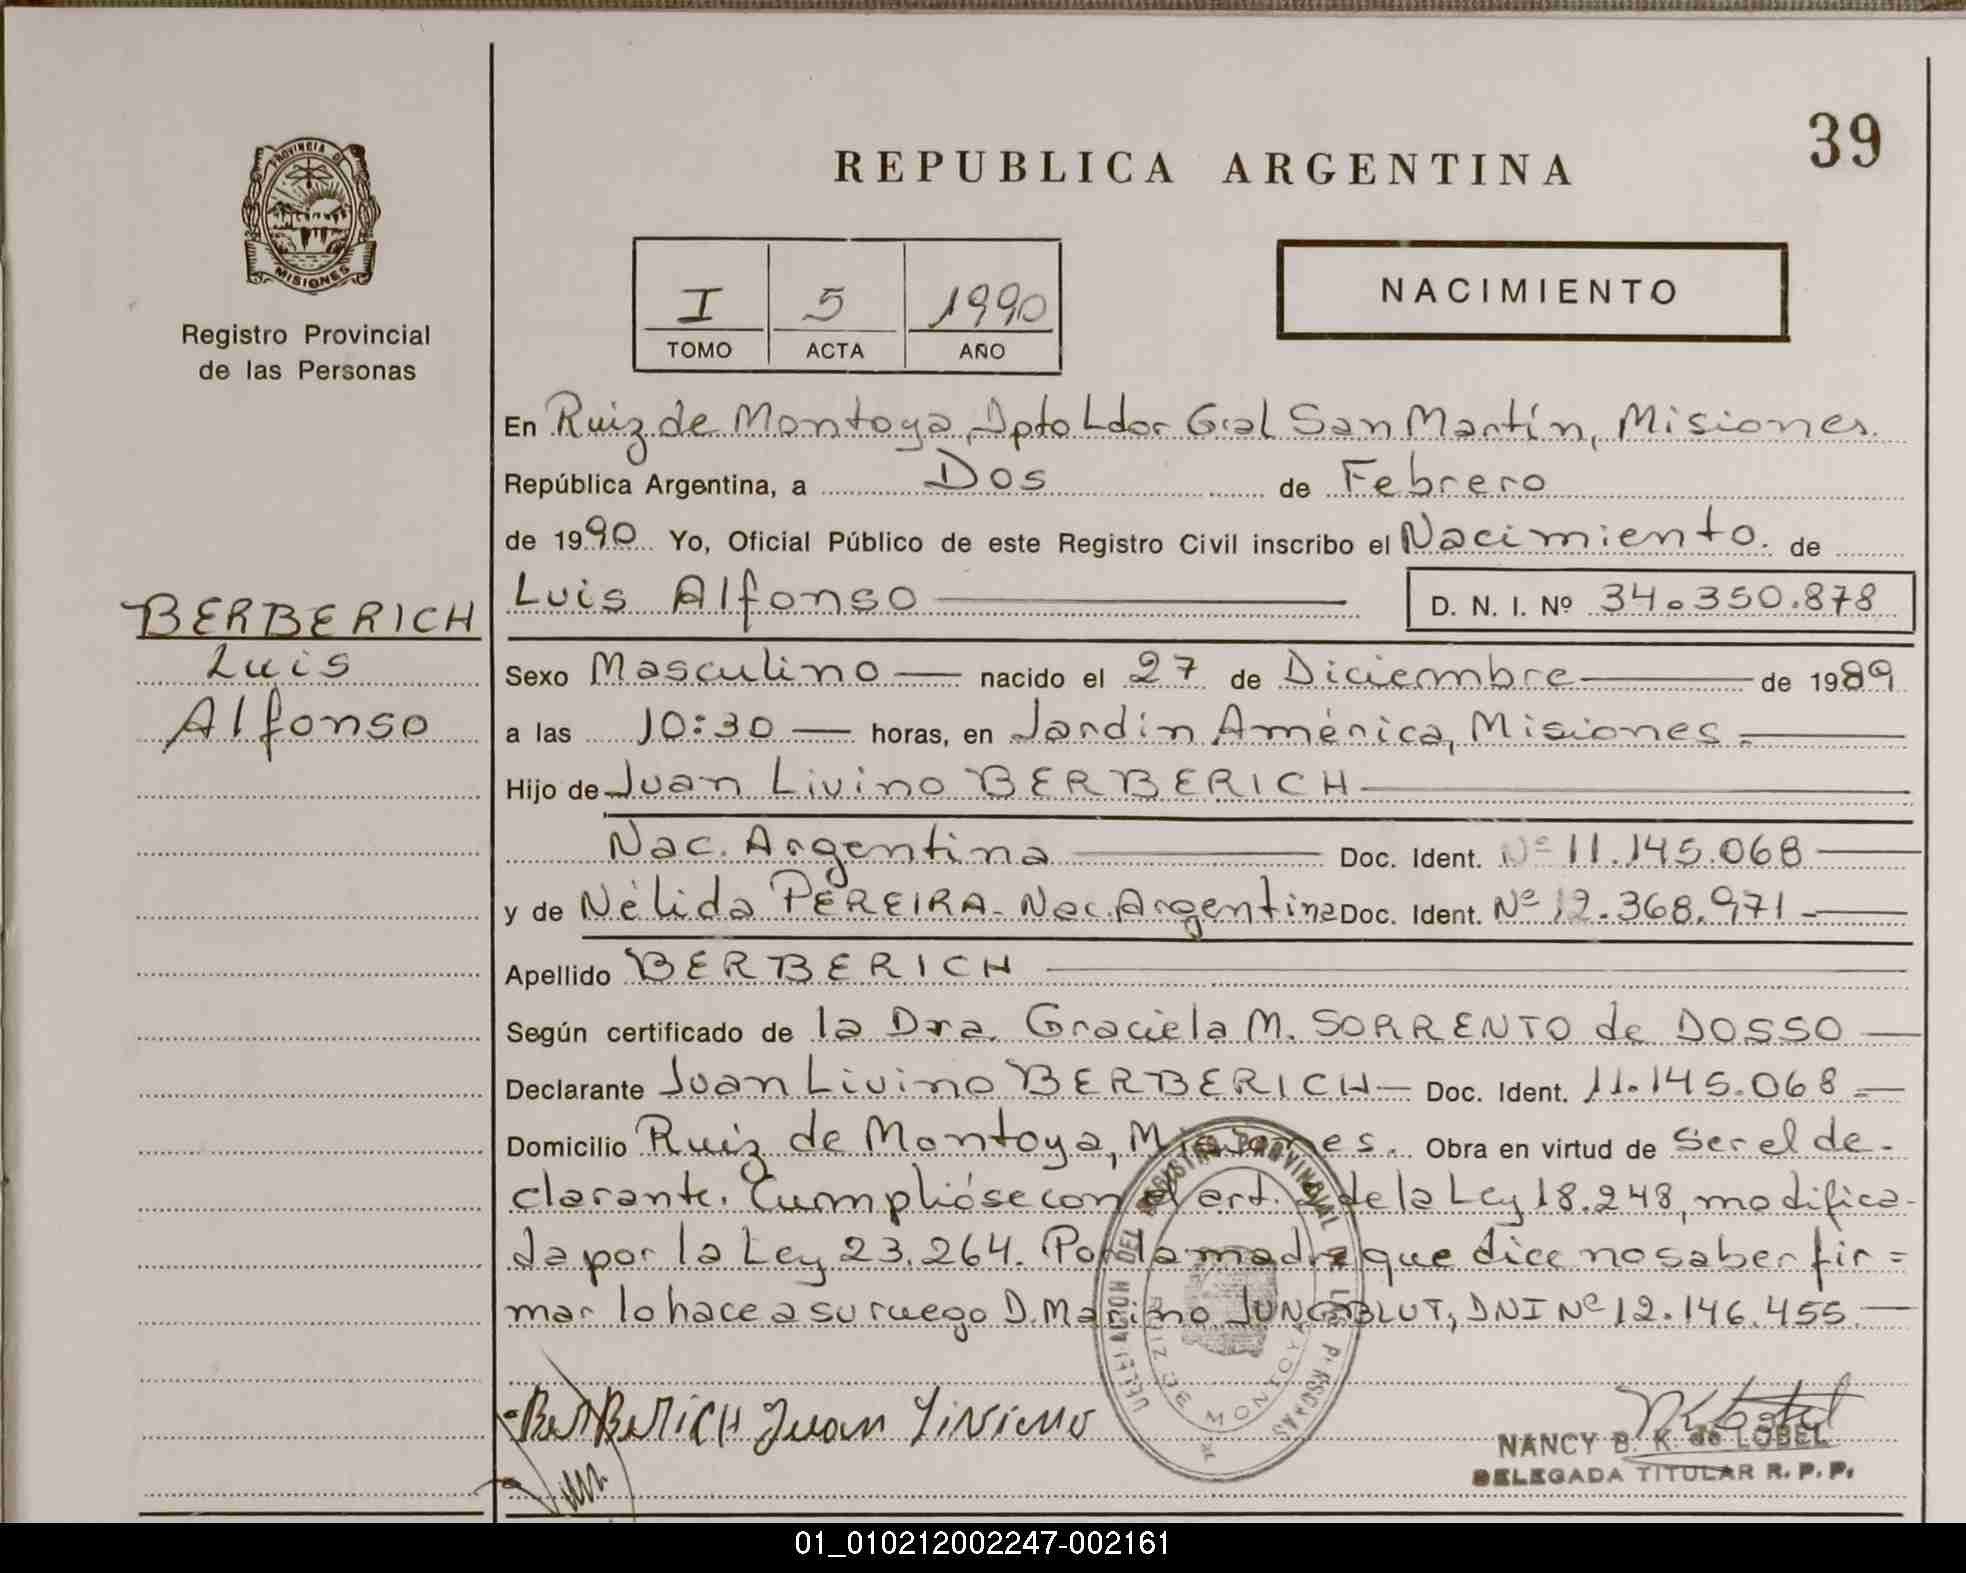 39
REPUBLICA ARGENTINA
PROVINCIA DE
MISIONES
Registro Provincial
de las Personas
I 5 1990
TOMO ACTA AÑO
NACIMIENTO
En Ruiz de Montoya, Dpto Ldor Gral San Martín, Misiones.
República Argentina, a Dos de Febrero
de 1990 Yo, Oficial Público de este Registro Civil inscribo el Nacimiento. de
Luis Alfonso D. N. I. Nº 34.350.878
BERBERICH
Luis
Alfonso
Sexo Masculino nacido el 27 de Diciembre de 1989
a las 10:30 horas, en Jardín América, Misiones.
Hijo de Juan Livino BERBERICH
Nac. Argentina Doc. Ident. Nº 11.145.068
y de Nélida PEREIRA. Nac. Argentina Doc. Ident. Nº 12.368.971
Apellido BERBERICH
Según certificado de la Dra. Graciela M. SORRENTO de DOSSO
Declarante Juan Livino BERBERICH Doc. Ident. 11.145.068
Domicilio Ruiz de Montoya, Misiones. Obra en virtud de Ser el de-
clarante. Cumplióse con el art. de la Ley 18.248, modifica-
da por la Ley 23.264. Por la madre que dice no saber fir=
mar lo hace a su ruego D. Marino JUNGBLUT, DNI Nº 12.146.455.
BERBERICH Juan Livino
DEL REGISTRO PROVINCIAL
RUIZ DE MONTOYA
NANCY B. K. de LOBEL
DELEGADA TITULAR R. P. P.
01_010212002247-002161